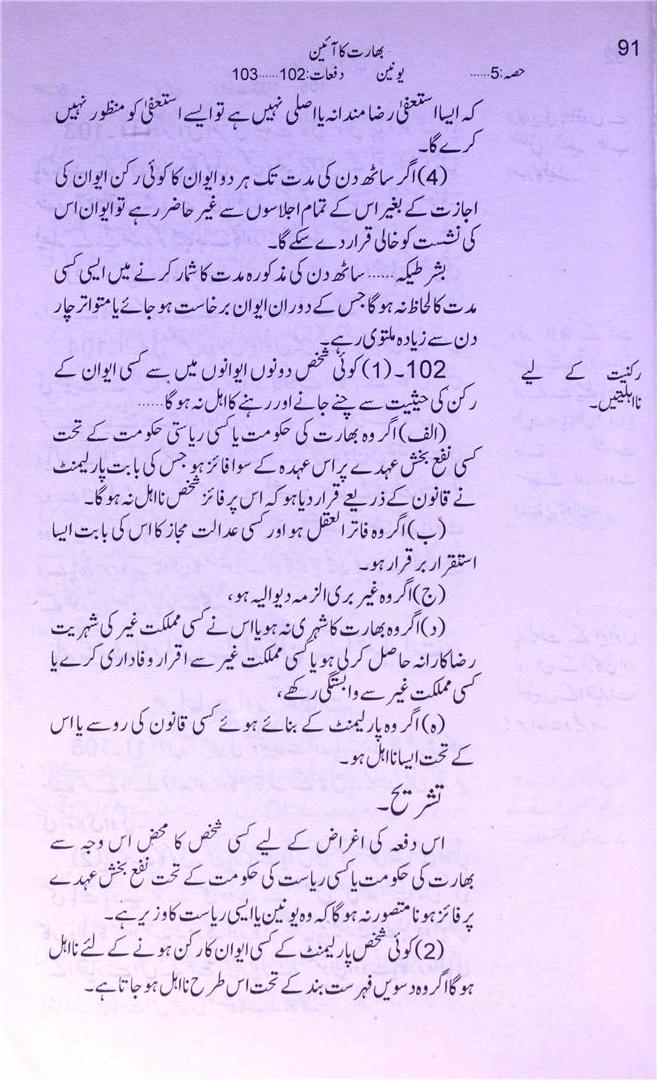 91
بھارت کا آئین
حصہ:5...... یونین دفعات:102......103
کہ ایسا استعفیٰ رضا مندانہ یا اصلی نہیں ہے تو ایسے استعفیٰ کو منظور نہیں
کرے گا۔
(4) اگر ساٹھ دن کی مدت تک ہر دو ایوان کا کوئی رکن ایوان کی
اجازت کے بغیر اس کے تمام اجلاسوں سے غیر حاضر رہے تو ایوان اس
کی نشست کو خالی قرار دے سکے گا۔
بشرطیکہ...... ساٹھ دن کی مذکورہ مدت کا شمار کرنے میں ایسی کسی
مدت کا لحاظ نہ ہوگا جس کے دوران ایوان برخاست ہو جائے یا متواتر چار
دن سے زیادہ ملتوی رہے۔
رکنیت کے لیے
نااہلیتیں۔
102۔(1) کوئی شخص دونوں ایوانوں میں سے کسی ایوان کے
رکن کی حیثیت سے چنے جانے اور رہنے کا اہل نہ ہوگا......
(الف) اگر وہ بھارت کی حکومت یا کسی ریاستی حکومت کے تحت
کسی نفع بخش عہدے پر اس عہدہ کے سوا فائز ہو جس کی بابت پارلیمنٹ
نے قانون کے ذریعے قرار دیا ہو کہ اس پر فائز شخص نااہل نہ ہوگا۔
(ب) اگر وہ فاتر العقل ہو اور کسی عدالت مجاز کا اس کی بابت ایسا
استقرار برقرار ہو۔
(ج) اگر وہ غیر بری الزمہ دیوالیہ ہو،
(د) اگر وہ بھارت کا شہری نہ ہو یا اس نے کسی مملکت غیر کی شہریت
رضاکارانہ حاصل کر لی ہو یا کسی مملکت غیر سے اقرار وفاداری کرے یا
کسی مملکت غیر سے وابستگی رکھے،
(ہ) اگر وہ پارلیمنٹ کے بنائے ہوئے کسی قانون کی رو سے یا اس
کے تحت ایسا نااہل ہو۔
تشریح۔
اس دفعہ کی اغراض کے لیے کسی شخص کا محض اس وجہ سے
بھارت کی حکومت یا کسی ریاست کی حکومت کے تحت نفع بخش عہدے
پر فائز ہونا متصور نہ ہوگا کہ وہ یونین یا ایسی ریاست کا وزیر ہے۔
(2) کوئی شخص پارلیمنٹ کے کسی ایوان کا رکن ہونے کے لئے نااہل
ہوگا اگر وہ دسویں فہرست بند کے تحت اس طرح نااہل ہو جاتا ہے۔